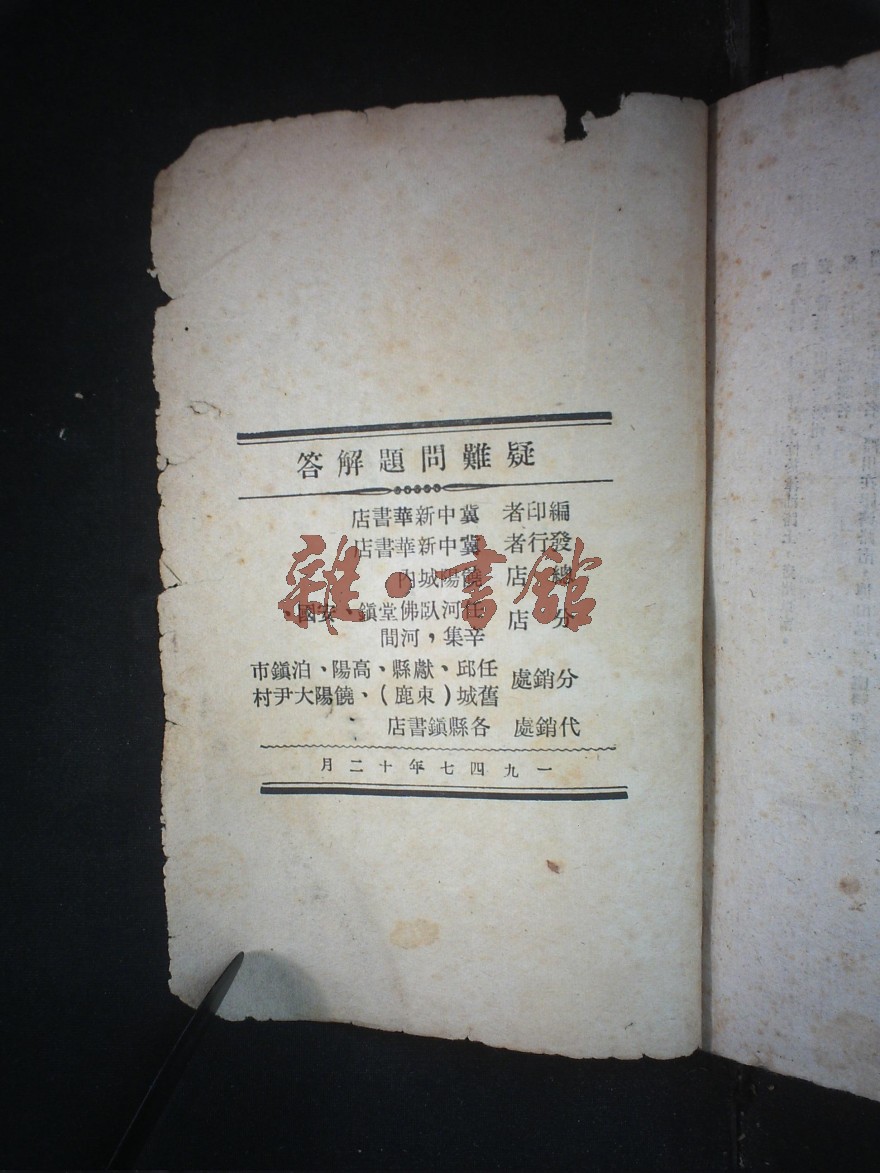 疑難問題解答
編印者 冀中新華書店
發行者 冀中新華書店
總店 饒陽城內
分店 任河臥佛堂鎮、安國、
辛集，河間
分銷處 任邱、獻縣、高陽、泊鎮市
舊城（束鹿）、饒陽大尹村
代銷處 各縣鎮書店
一九四七年十二月
雜·書館